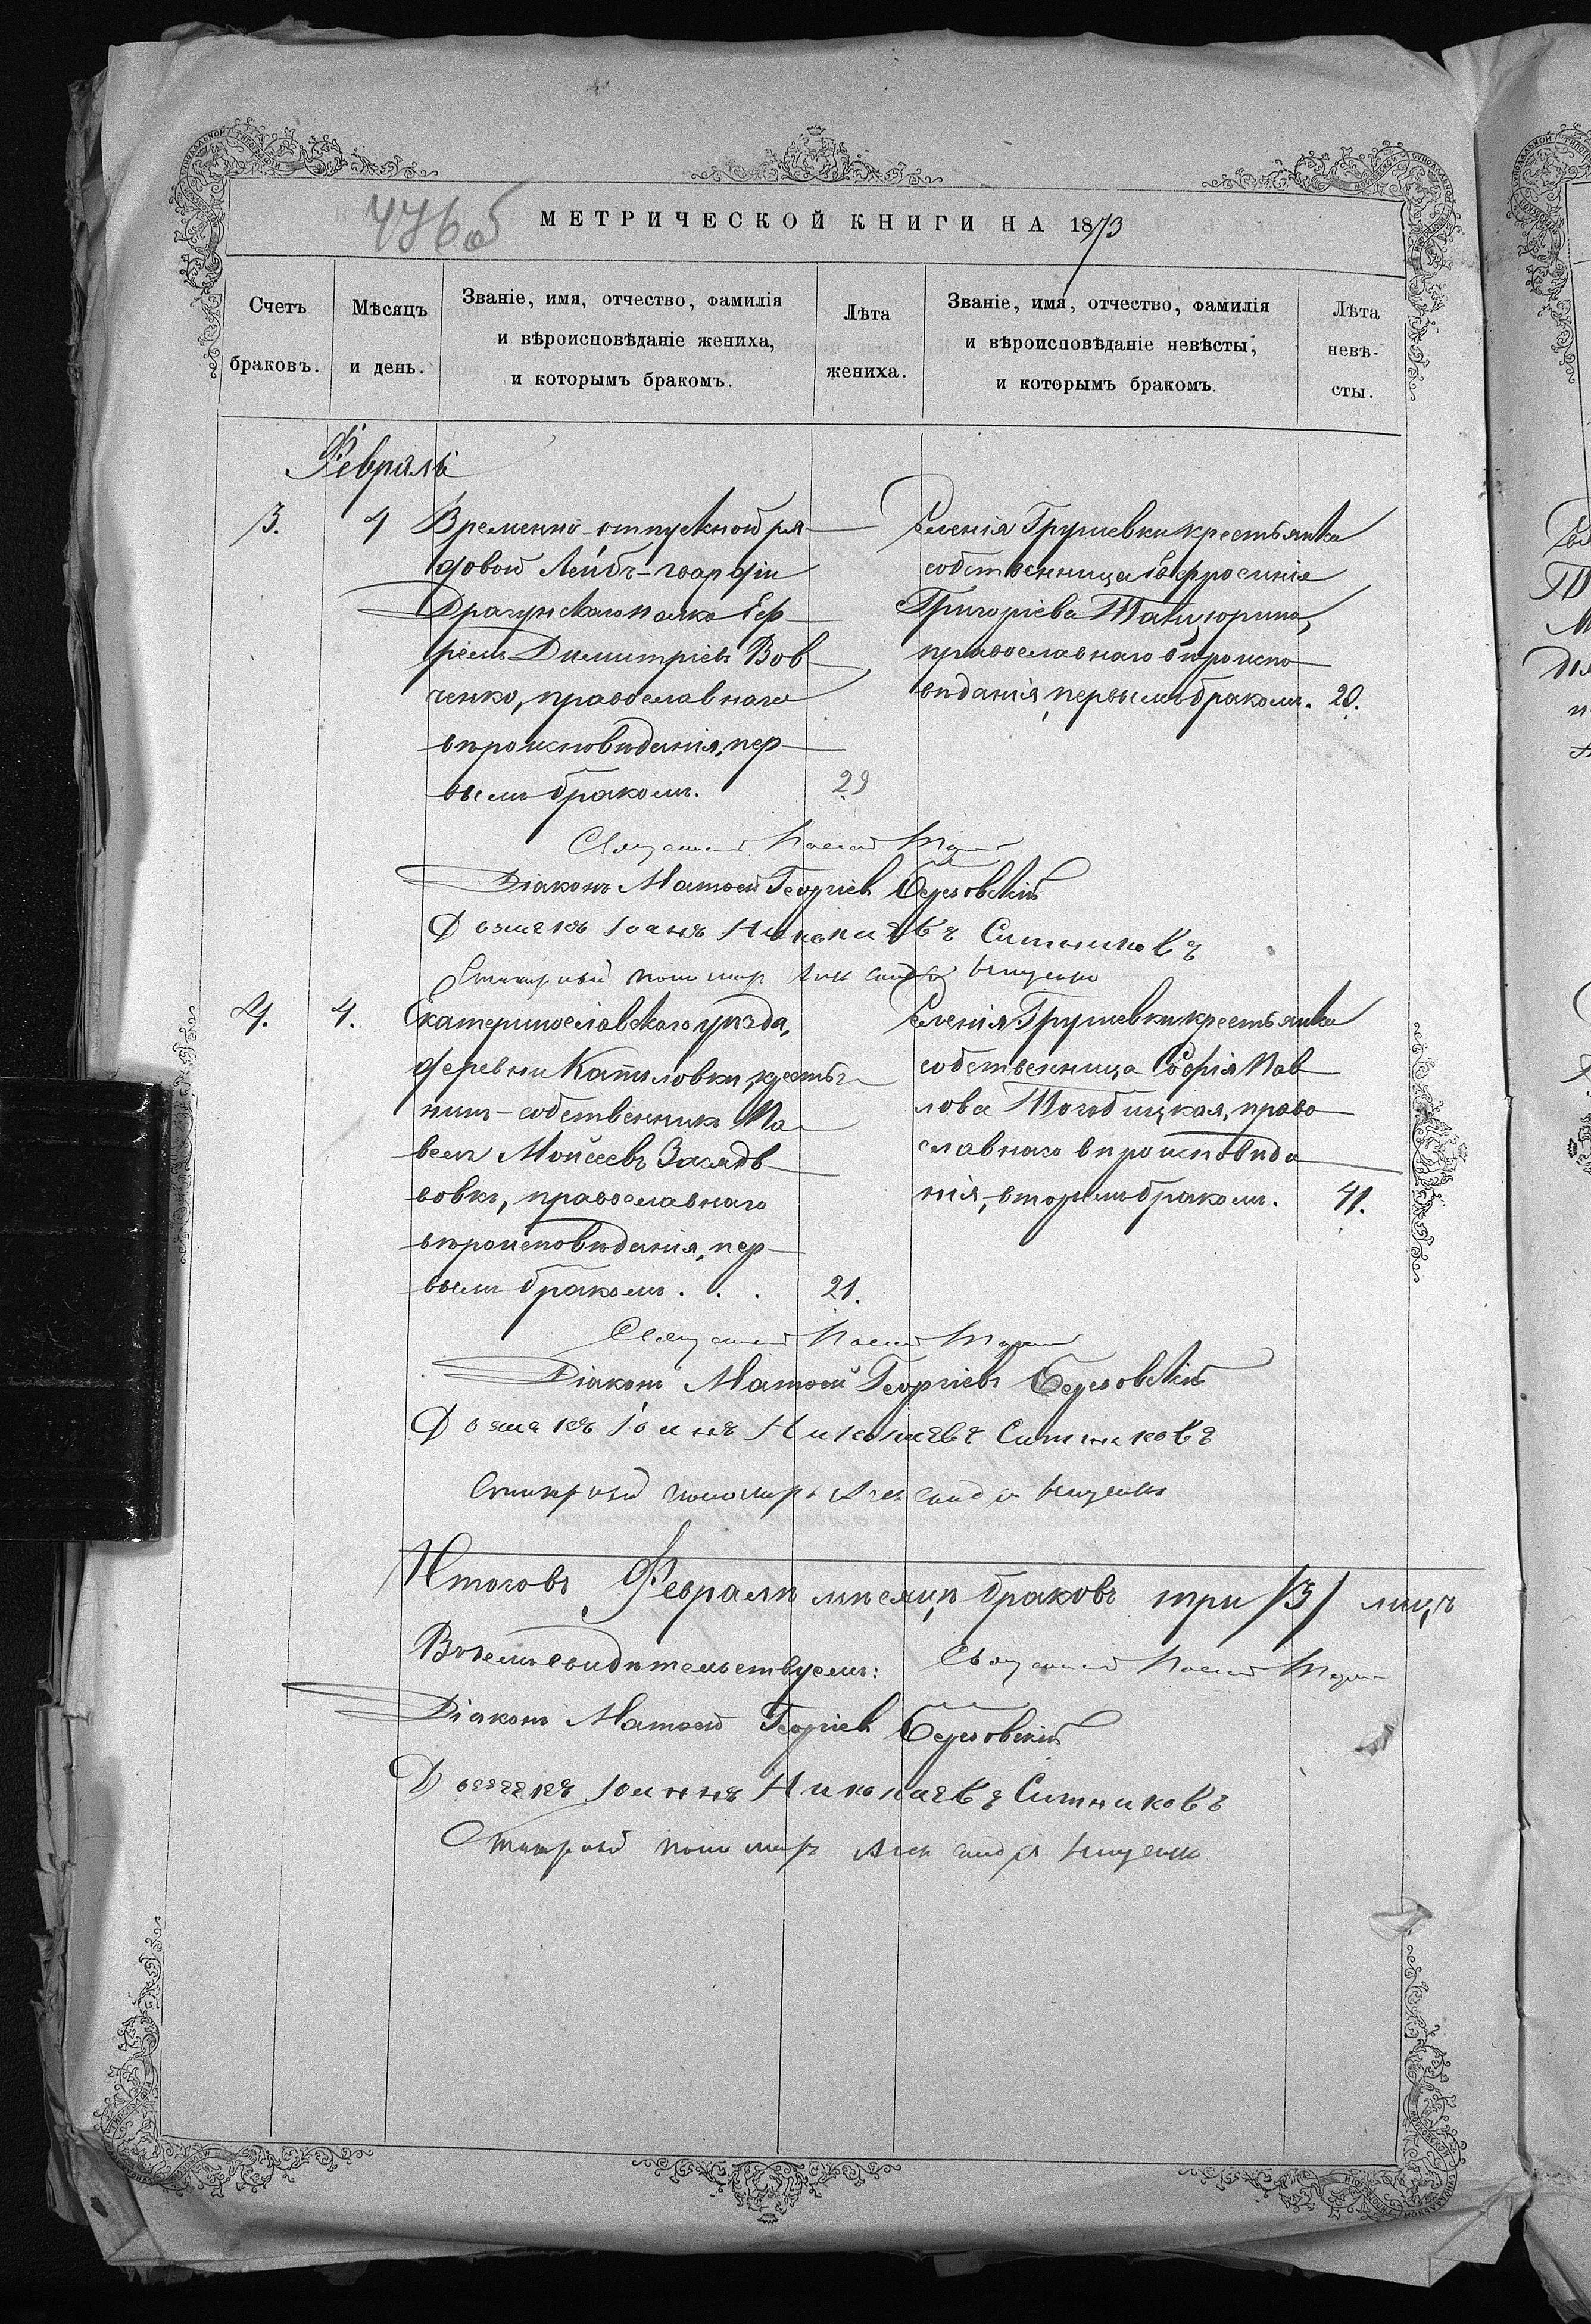 МЕТРИЧЕСКОЙ КНИГИ НА 1873
Счетъ браковъ.
Мѣсяцъ и день.
Званіе, имя, отчество, фамилія
и вѣроисповѣданіе жениха,
и которымъ бракомъ.
Лѣта
жениха.
Званіе, имя, отчество, фамилія
и вѣроисповѣданіе невѣсты,
и которымъ бракомъ.
Лѣта
невѣ-
сты.
Февраль
3.
4
Временно-отпускной ря-
довой Лейбъ-гвардіи
Драгунскаго полка Еф-
ремъ Димитріевъ Вов-
ченко, православнаго
вѣроисповѣданія, пер-
вымъ бракомъ.
29
Селенія Грушевки крестьянка
собственница Евфросинія
Григоріева
православнаго вѣроиспо-
вѣданія, первымъ бракомъ.
20.
Священникъ
Діаконъ Матвей Георгіевъ
Дьячекъ Іоаннъ Николаевъ Ситниковъ
пономарь
4.
4.
Екатеринославскаго уѣзда,
деревни крестья-
нинъ-собственникъ Па-
велъ Мойсеевъ
православнаго
вѣроисповѣданія, пер-
вымъ бракомъ . . .
21.
Селенія Грушевки крестьянка
собственница Софія Пав-
лова право-
славнаго вѣроисповѣда-
нія, вторымъ бракомъ.
41.
Священникъ
Діаконъ Матвей Георгіевъ
Дьячекъ Іоаннъ Николаевъ Ситниковъ
пономарь
Итого въ Февралѣ мѣсяцѣ браковъ три /3/ лицъ
В чемъ свидѣтельствуемъ: Священникъ
Діаконъ Матвей Георгіевъ
Дьячекъ Іоаннъ Николаевъ Ситниковъ
пономарь